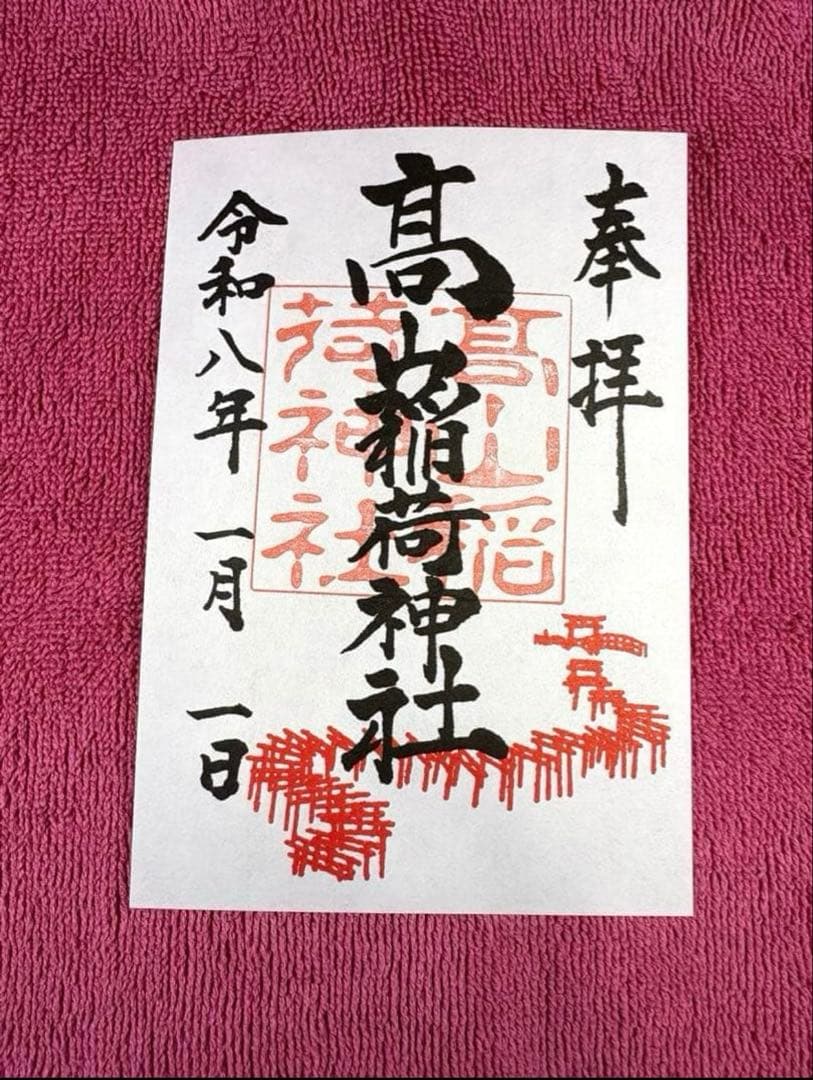 奉拝
髙山稲荷神社
髙山稲
荷神社
令和八年 一月 一日